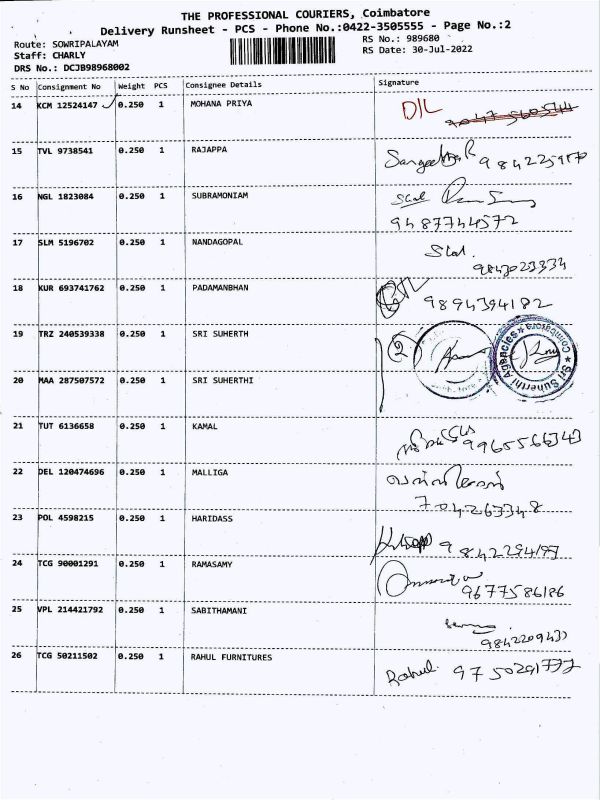 THE PROFESSIONAL COURIERS, Coimbatore
Delivery Runsheet - PCS - Phone No.:0422-3505555 - Page No.:2
Route: SOWRIPALAYAM
RS No.: 989680
Staff: CHARLY
RS Date: 30-Jul-2022
DRS No.: DCJB98968002
S No Consignment No Weight PCS Consignee Details Signature
14 KCM 12524147 0.250 1 MOHANA PRIYA D/L
15 TVL 9738541 0.250 1 RAJAPPA
16 NGL 1823084 0.250 1 SUBRAMONIAM
9487744572
17 SLM 5196702 0.250 1 NANDAGOPAL
18 KUR 693741762 0.250 1 PADAMANBHAN 9894394182
19 TRZ 240539338 0.250 1 SRI SUHERTH 2
Sri Suherthi Agencies ★ Coimbatore ★
20 MAA 287507572 0.250 1 SRI SUHERTHI
21 TUT 6136658 0.250 1 KAMAL 9965566343
22 DEL 120474696 0.250 1 MALLIGA
23 POL 4598215 0.250 1 HARIDASS
24 TCG 90001291 0.250 1 RAMASAMY
9677586186
25 VPL 214421792 0.250 1 SABITHAMANI
26 TCG 50211502 0.250 1 RAHUL FURNITURES Rahul